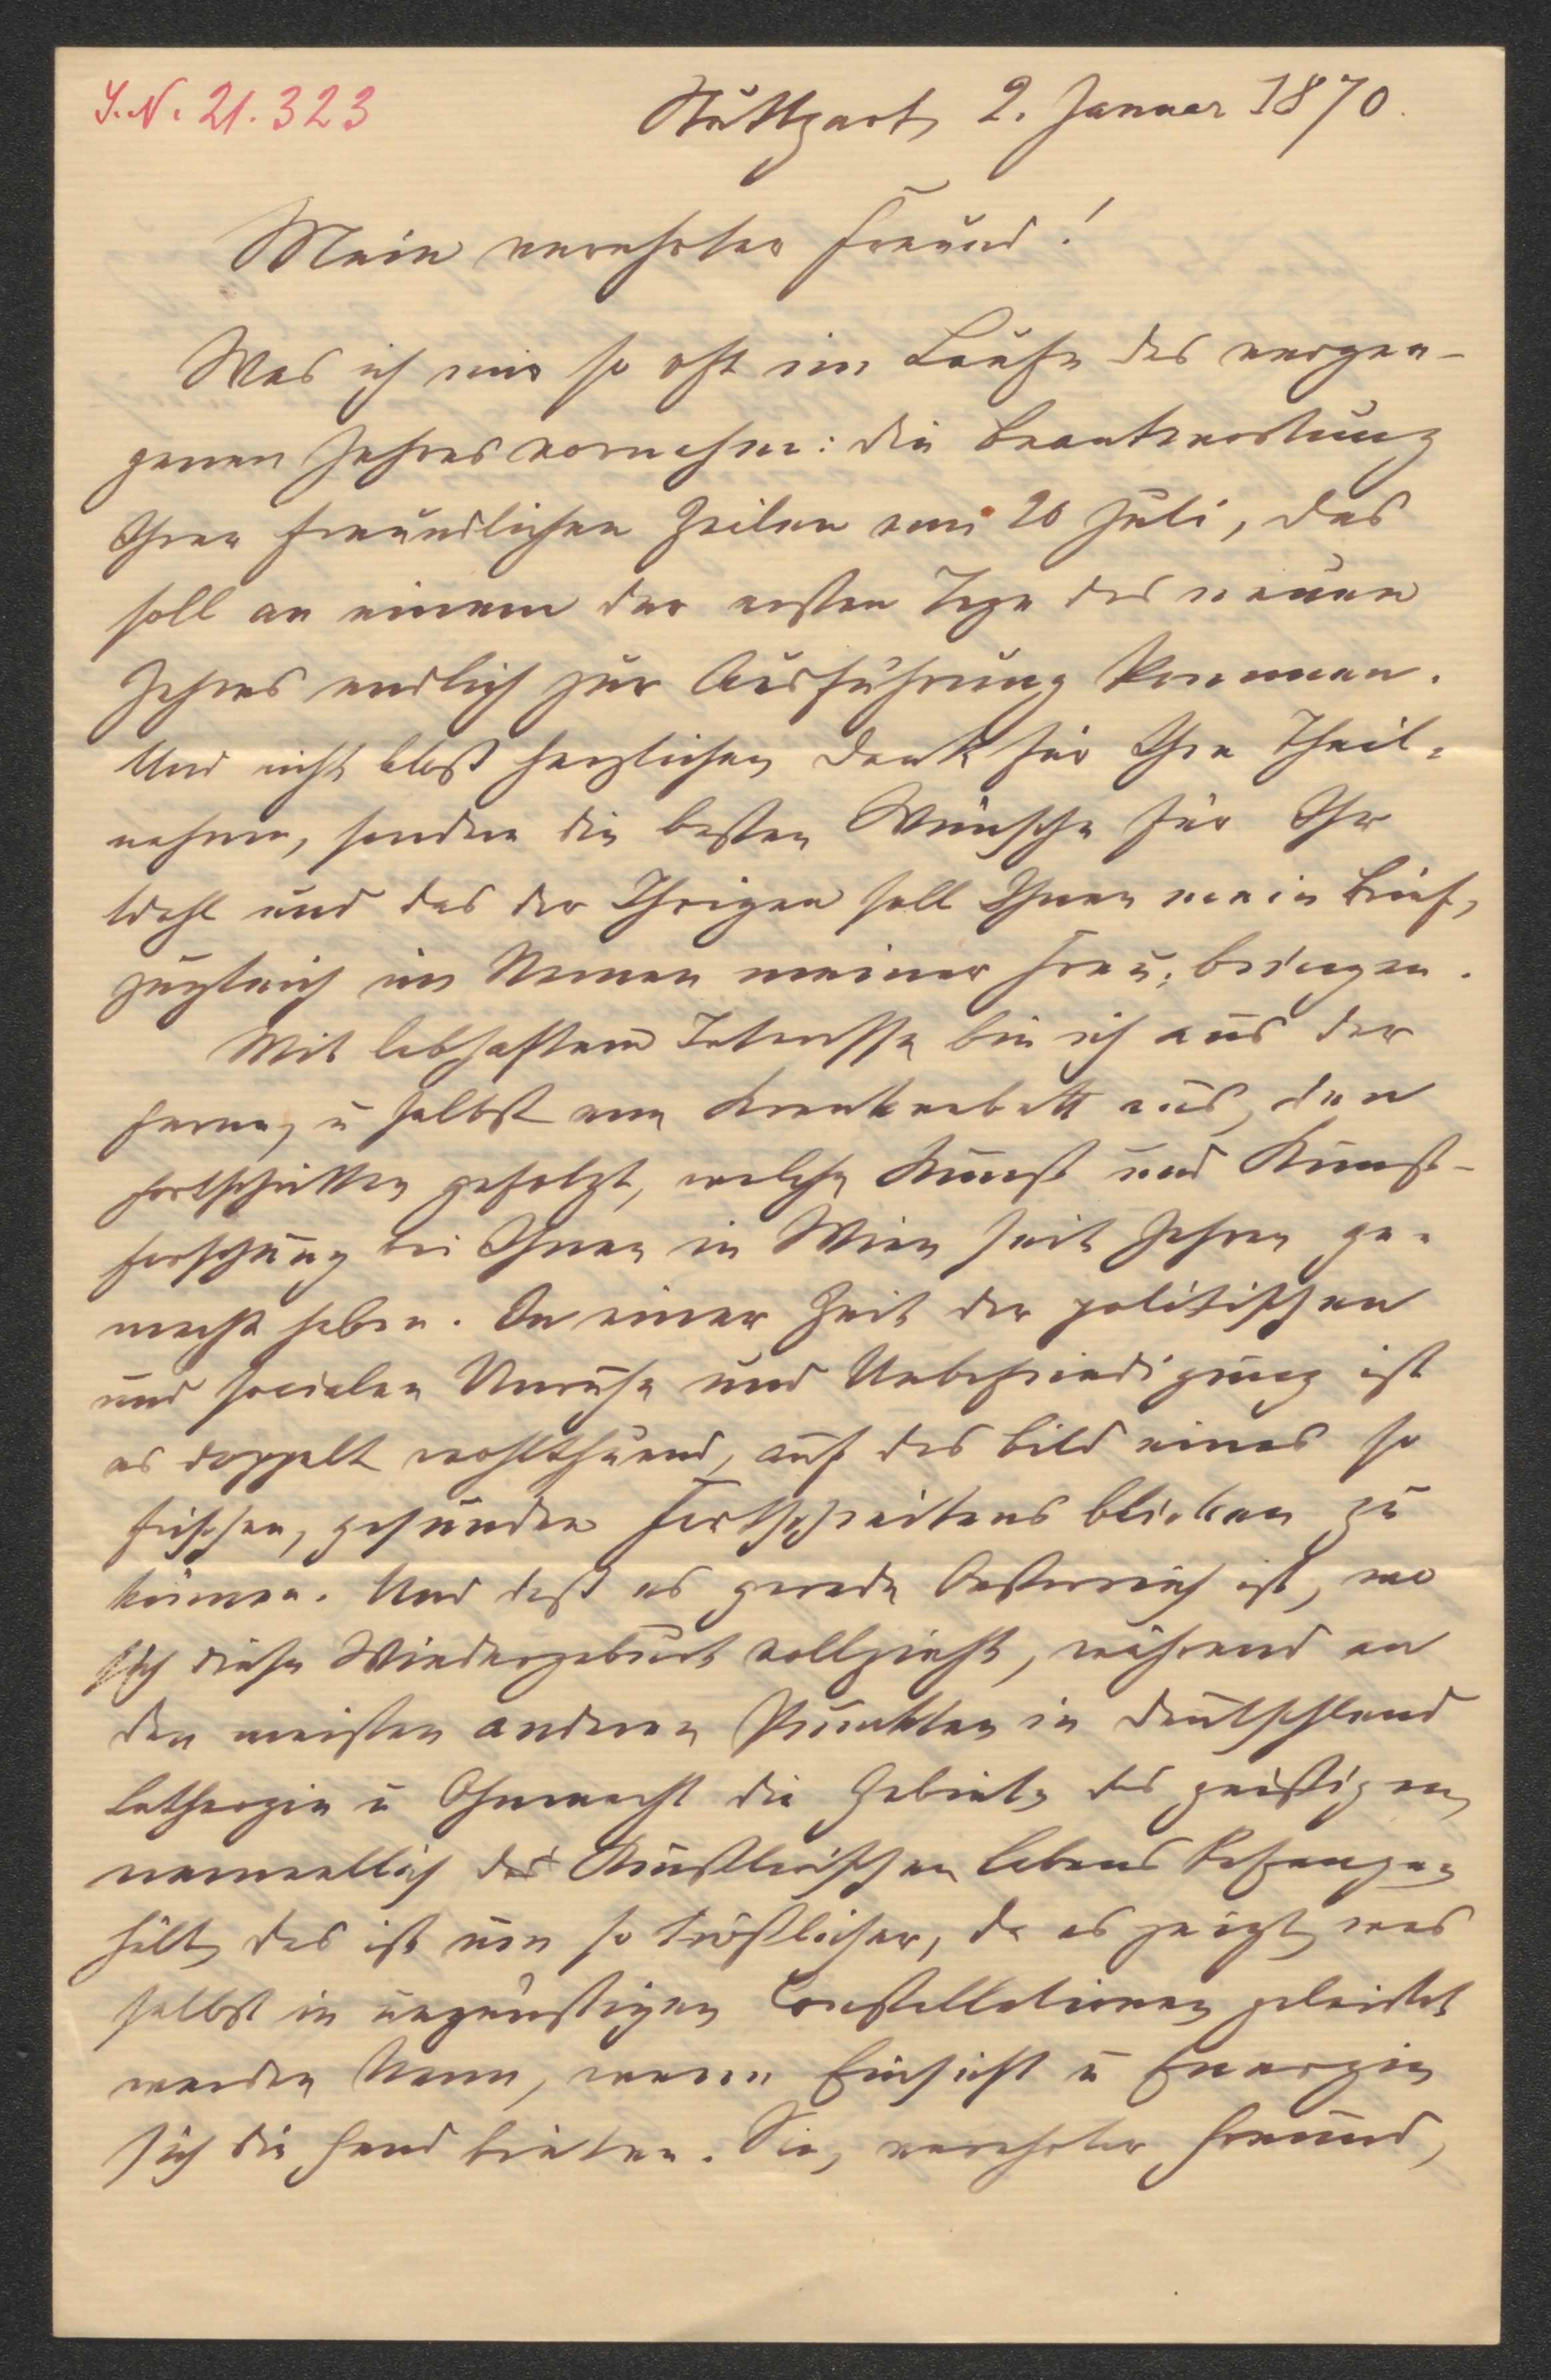 I.N. 21.323
Stuttgart 2. Januar 1870.
Mein verehrter Freund!
Was ich mir so oft im Laufe des vergan-
genen Jahres vornahm: die Beantwortung
Ihrer freundlichen Zeilen vom 20 Juli, das
soll an einem der ersten Tage des neuen
Jahres endlich zur Ausführung kommen.
Und nicht bloß herzlichen Dank für Ihre Theil-
nahme, sondern die besten Wünsche für Ihr
Wohl und das der Ihrigen soll Ihnen mein Brief,
zugleich im Namen meiner Frau, bringen.
Mit lebhaftem Interesse bin ich aus der
Ferne, u selbst vom Krankenbett aus, den
Fortschritten gefolgt, welche Kunst und Kunst-
forschung bei Ihnen in Wien seit Jahren ge-
macht haben. In einer Zeit der politischen
und socialen Unruhe und Unbefriedigung ist
es doppelt wohlthuend, auf das Bild eines so
frischen, gesunden Fortschreitens blicken zu
können. Und daß es gerade Oesterreich ist, wo
sich diese Wiedergeburt vollzieht, während an
den meisten anderen Punkten in Deutschland
Lethargie u Ohnmacht die Gebiete des geistigen,
namentlich des künstlerischen Lebens befangen
hält, das ist um so tröstlicher, da es zeigt, was
selbst in ungünstigen Constellationen geleistet
werden kann, wenn Einsicht u Energie
sich die Hand bieten. Sie, verehrter Freund,